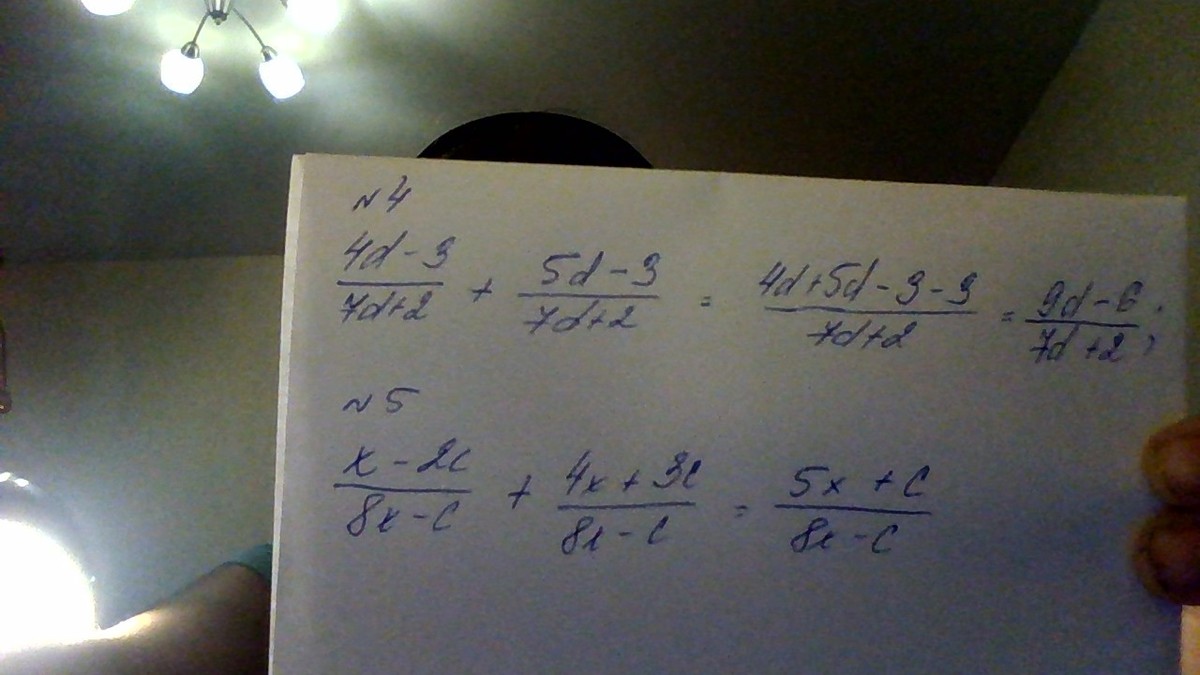 № 4
(4d-3)/(7d+2) + (5d-3)/(7d+2) = (4d+5d-3-3)/(7d+2) = (9d-6)/(7d+2);
№ 5
(x-2c)/(8x-c) + (4x+3c)/(8x-c) = (5x+c)/(8x-c)